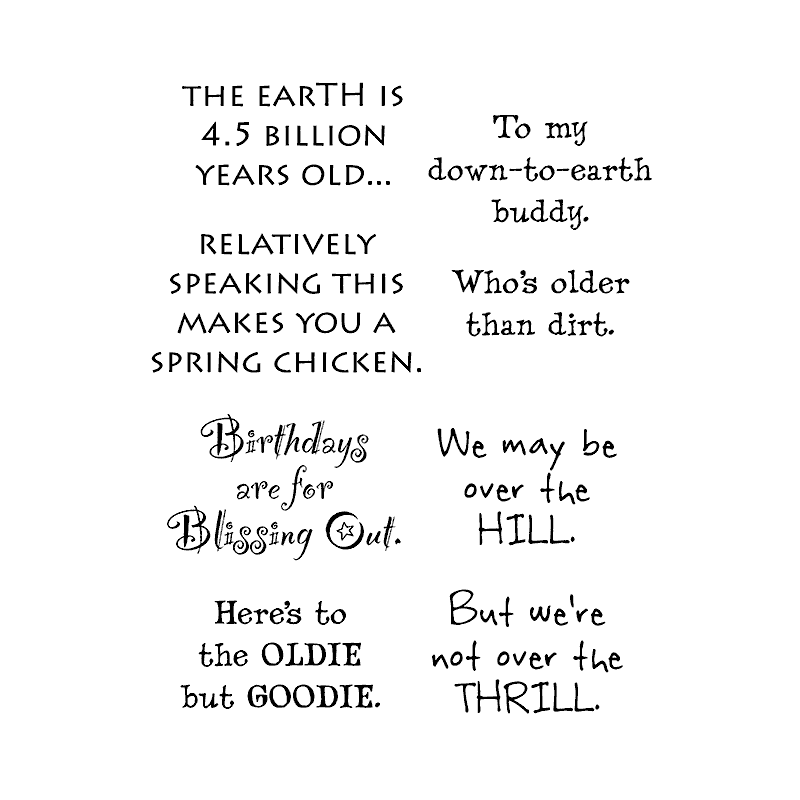 THE EARTH IS
4.5 BILLION
YEARS OLD...
RELATIVELY
SPEAKING THIS
MAKES YOU A
SPRING CHICKEN.
To my
down-to-earth
buddy.
Who's older
than dirt.
Birthdays
are for
Blissing Out.
We may be
over the
HILL.
Here's to
the OLDIE
but GOODIE.
But we're
not over the
THRILL.